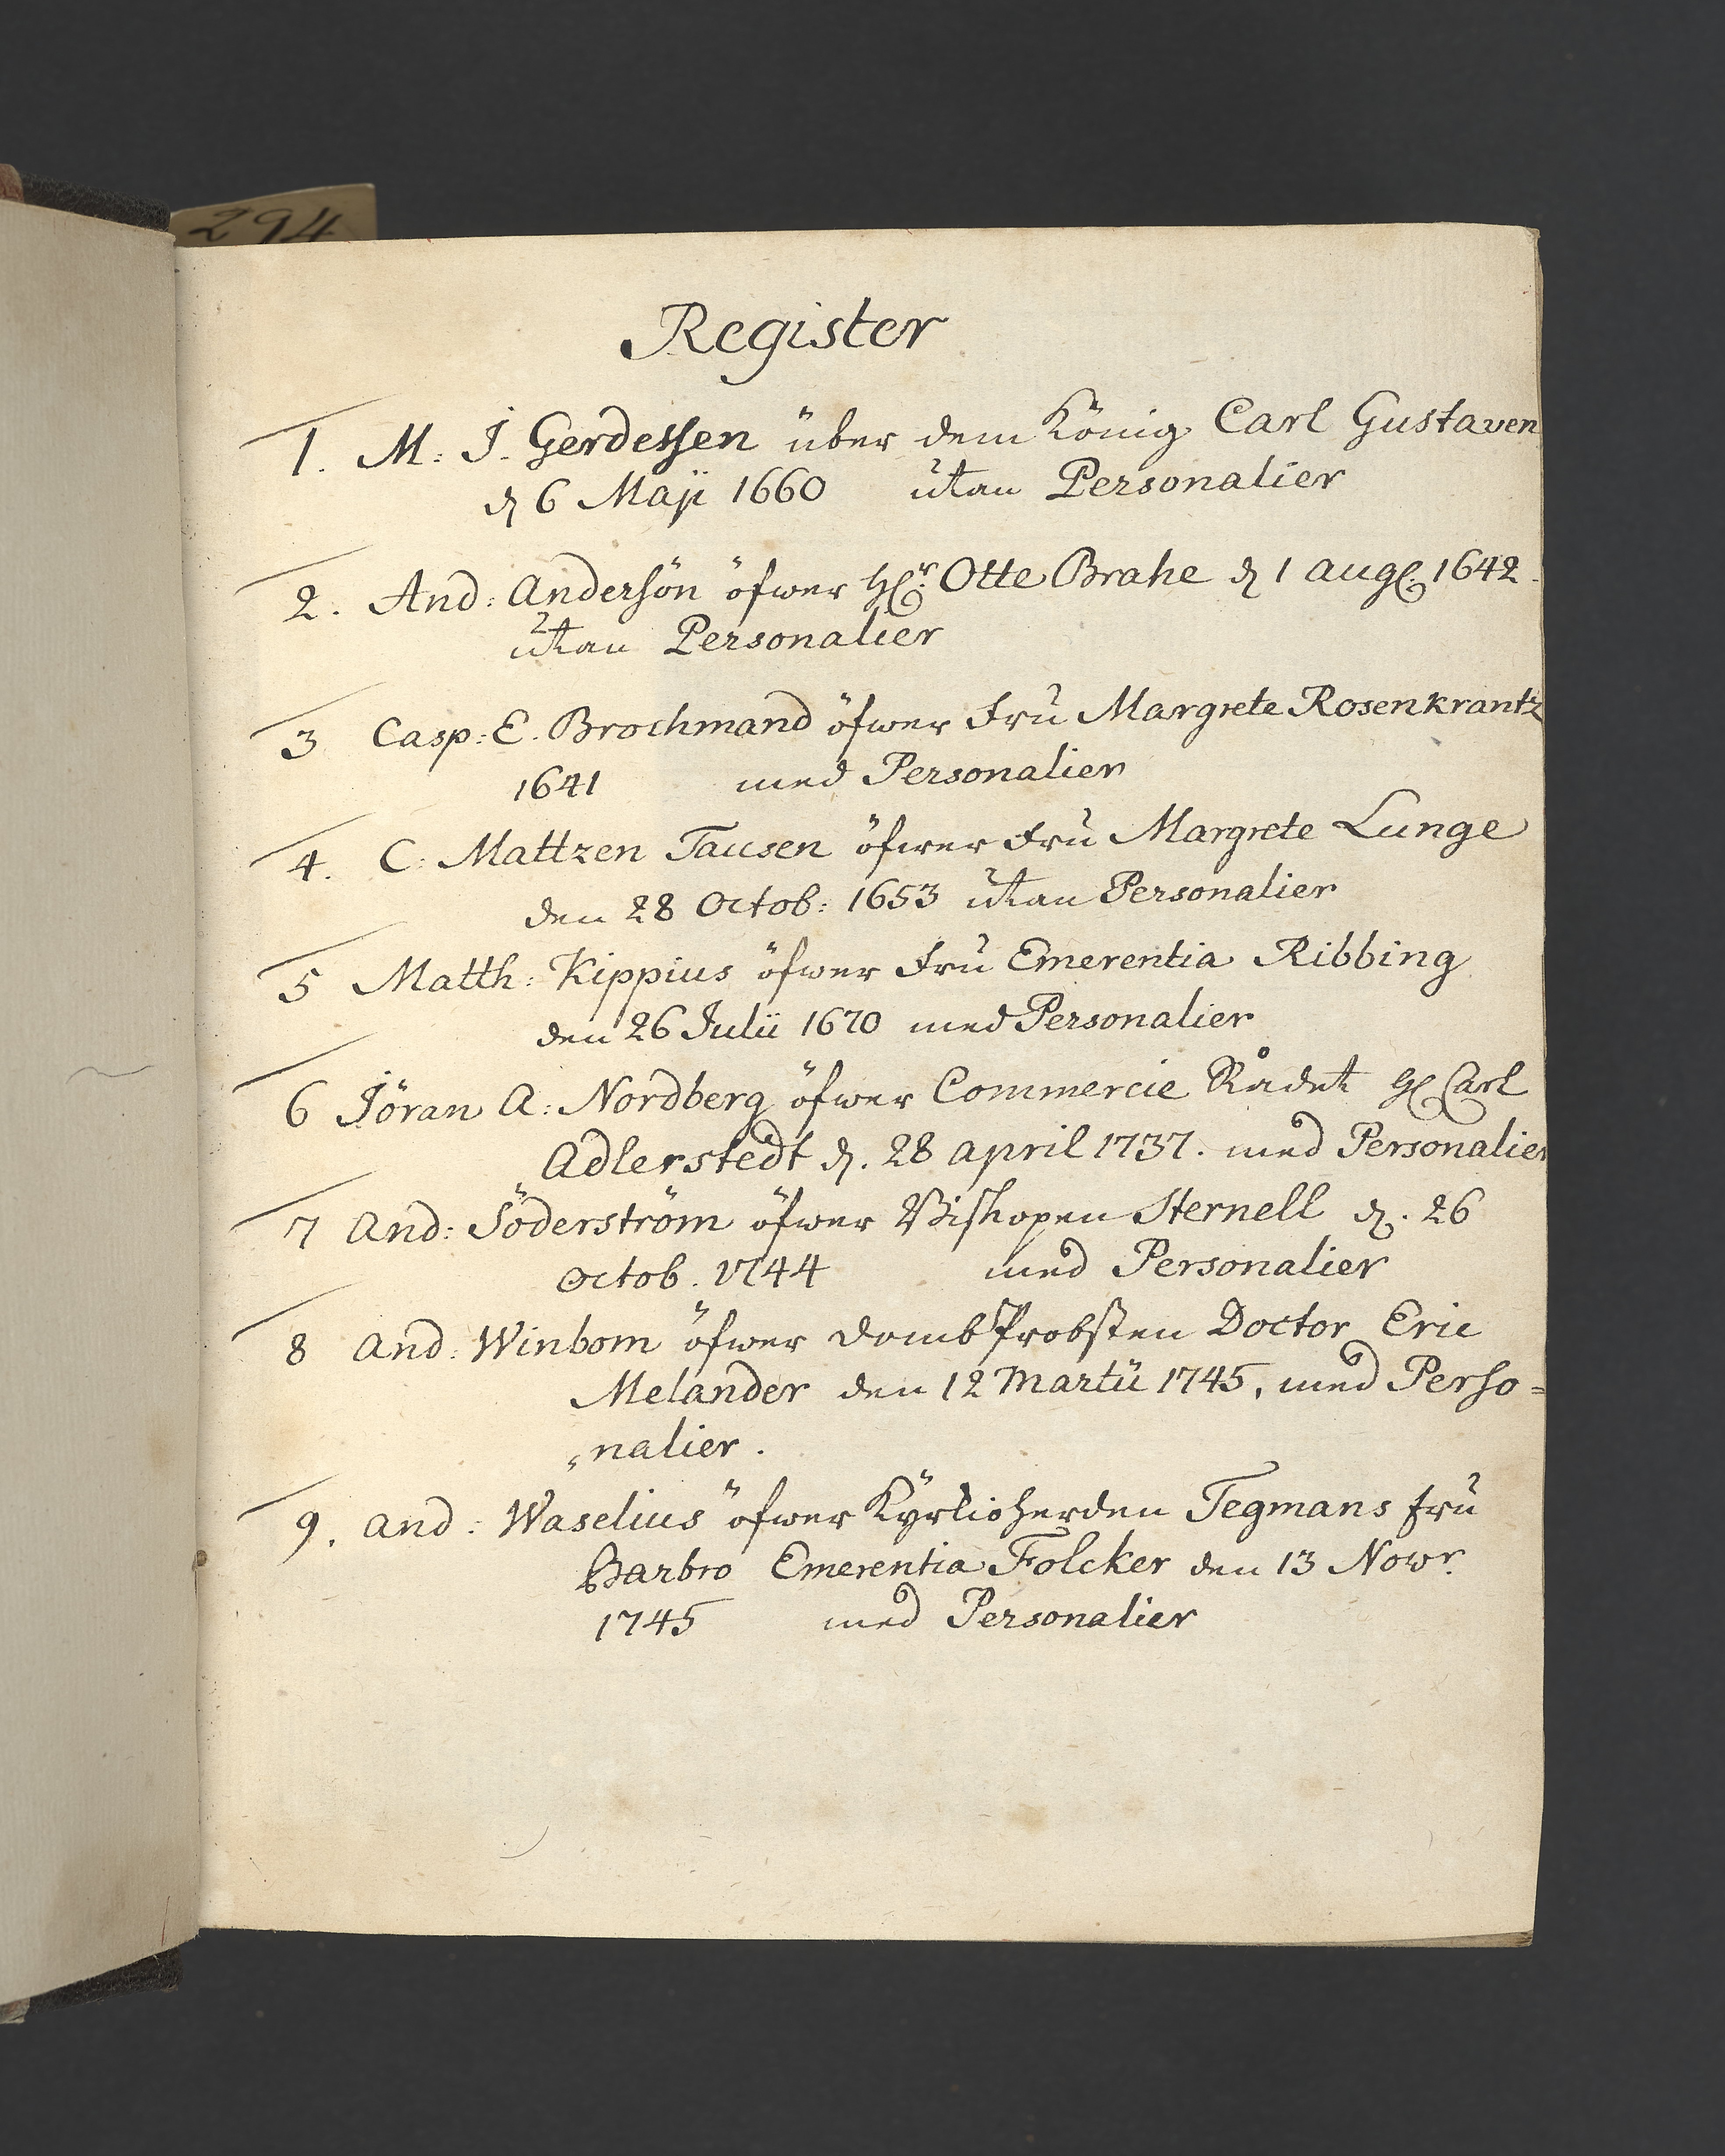 294
Register
1. M: J. Gerdessen über dem König Carl Gustaven
d 6 Maji 1660 utan Personalier
2. And: Andersön öfwer Hr: Otte Brahe d 1 aug. 1642.
utan Personalier
3 Casp: E. Brochmand öfwer Fru Margrete Rosenkrantz
1641 med Personalier
4. C: Mattzen Tausen öfwer Fru Margrete Lunge
den 28 Octob: 1653 utan Personalier
5 Matth: Kippius öfwer Fru Emerentia Ribbing
den 26 Julii 1670 med Personalier
6 Jöran A: Nordberg öfwer Commercie Rådet H Carl
Adlerstedt d. 28 april 1737. med Personalier
7 And: Söderström öfwer Biskopen Sternell d. 26
Octob. 1744 med Personalier
8 And: Winbom öfwer DombProbsten Doctor Eric
Melander den 12 Martii 1745, med Perso=
„nalier.
9. And: Waselius öfwer Kyrkioherden Tegmans fru
Barbro Emerentia Folcker den 13 Nowr.
1745 med Personalier